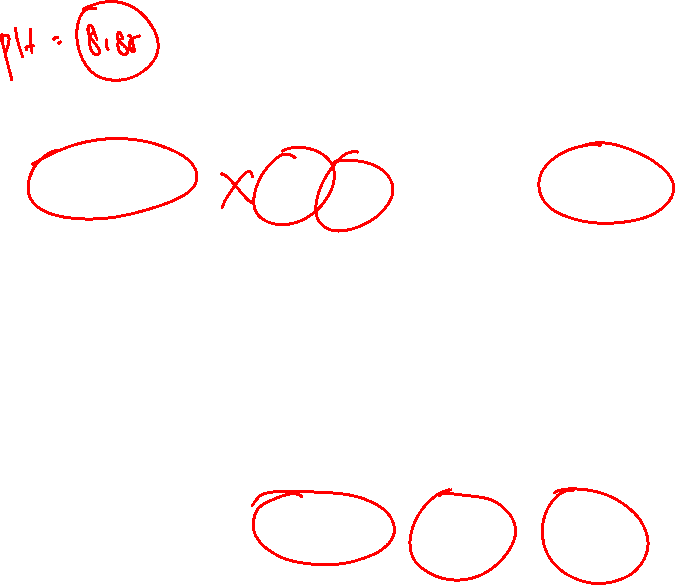 pH = 8.88
x